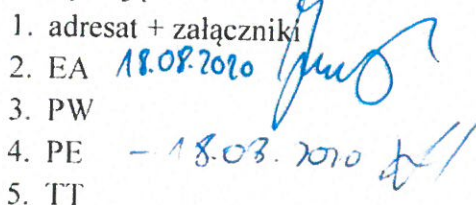 1. adresat + załączniki
2. EA 18.08.2020
3. PW
4. PE - 18.08.2020
5. TT